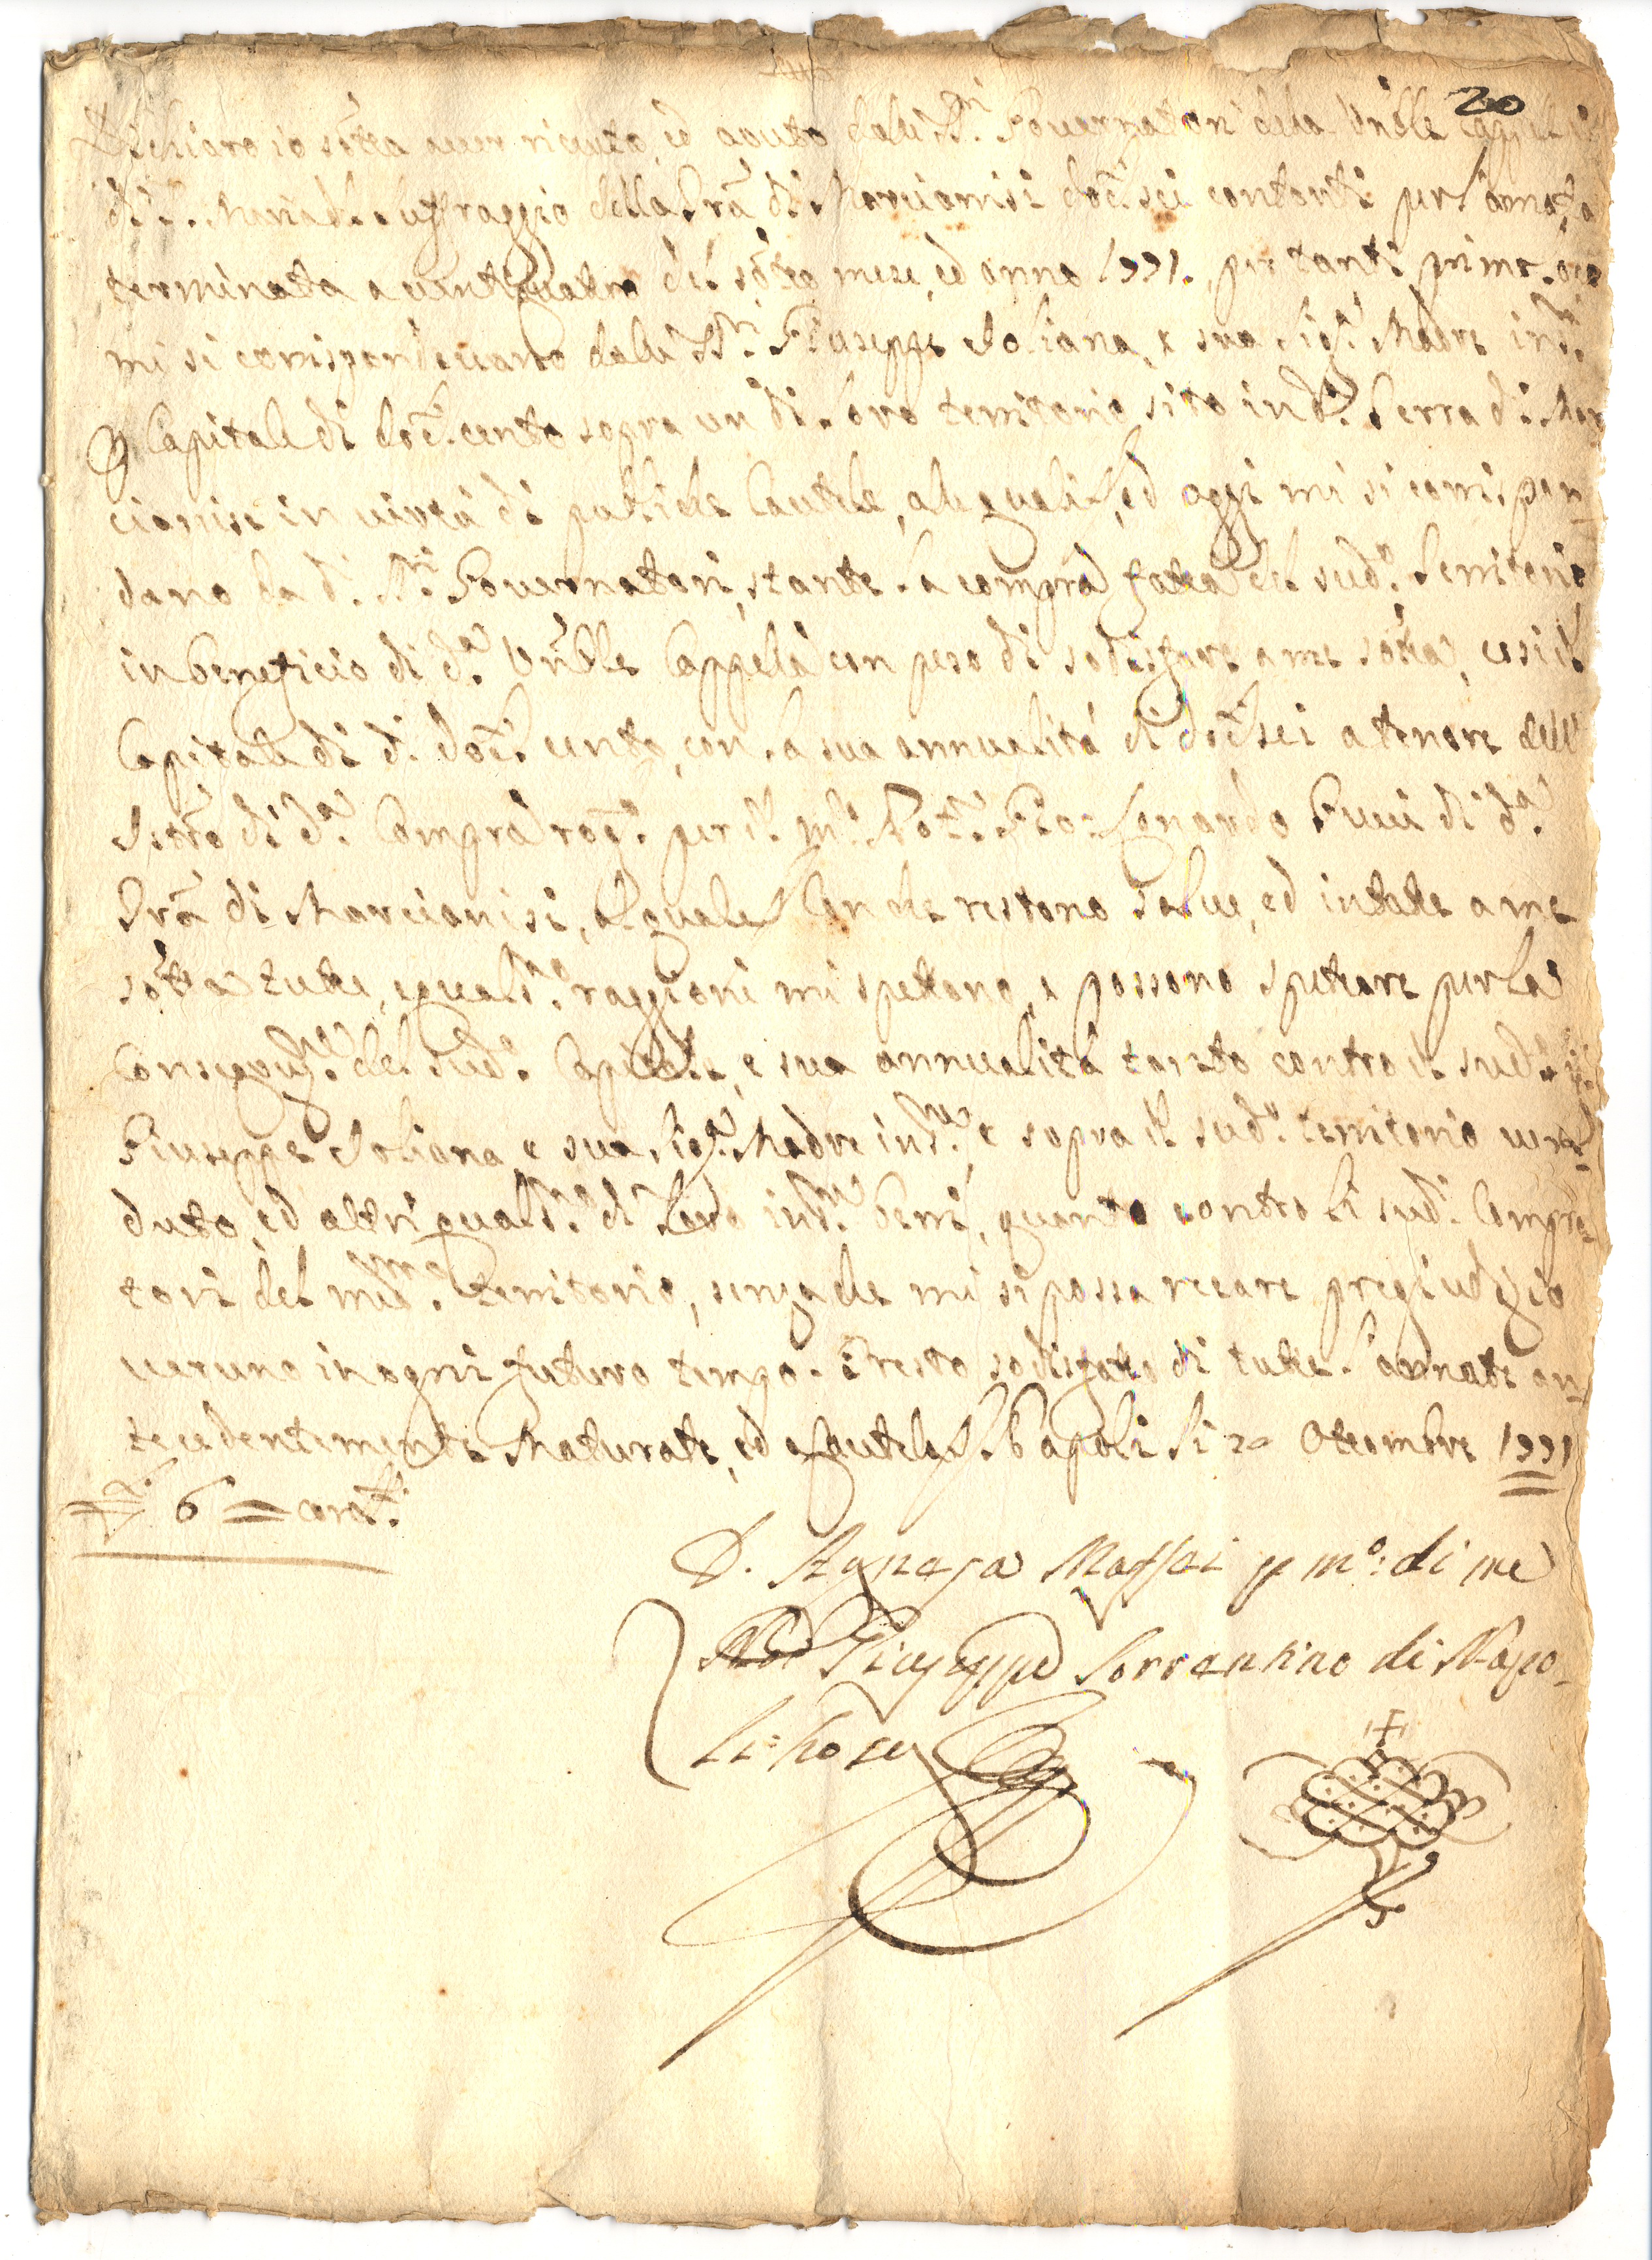 20
Dichiaro io sotta aver riceuto, ed avuto dalli SS.ri Governatori della Vn͞ble Cappella
di S. Maria del suffraggio della Trã di Marcianisi doc.ti sei contanti per l'annata
terminata a ventiquattro del sotto mese, ed anno 1771. per tanti prima
mi si corrispondevano dalli SS.ri Giuseppe Soliana, e sua Sig.a Madre in s.m
Capitale di doc.ti cento sopra un di loro territorio sito in d.a Terra di Mar
cianisi in virtù di publiche Cautele, alequali, ed oggi mi si corrispon
dano da d.i SS.ri Governatori, stante la compra fatta del sud.o Territorio
in beneficio di d.a Vn͞ble Cappella con peso di sodisfare a me sotta, cosi il
Capitale di d.i doc.ti cento, con la sua annualità di doc.ti sei a tenore dell'
Istro di d.a Compra rog.o per il m.co Not.r Gio: Lonardo Fucci di d.a
Trã di Marcianisi, al quale anche restono salve, ed intatte a me
sotta tutte, e quals.o raggioni mi spettono, e possono spettare per la
Conseguz.e del sud.o Capitale, e sua annualità tanto contro il sud.o
Giuseppe Soliana e sua Sig.a Madre in s.m, e sopra il sud.o territorio ven
duto, ed altri quals.o di loro in s.m beni, quanto contro li sud.i Compra
tori del med.mo Territorio, senza che mi si possa recare pregiudizio
veruno in ogni futuro tempo. E resto sodisfatta di tutte l'annate an
tecedentemente Maturate, ed a Cautela Napoli li 20 Ottombre 1771
6 = cont.
D. Agnesa Maffei p m.o di me
Not.r Giuseppe Sorrentino di Napo
li